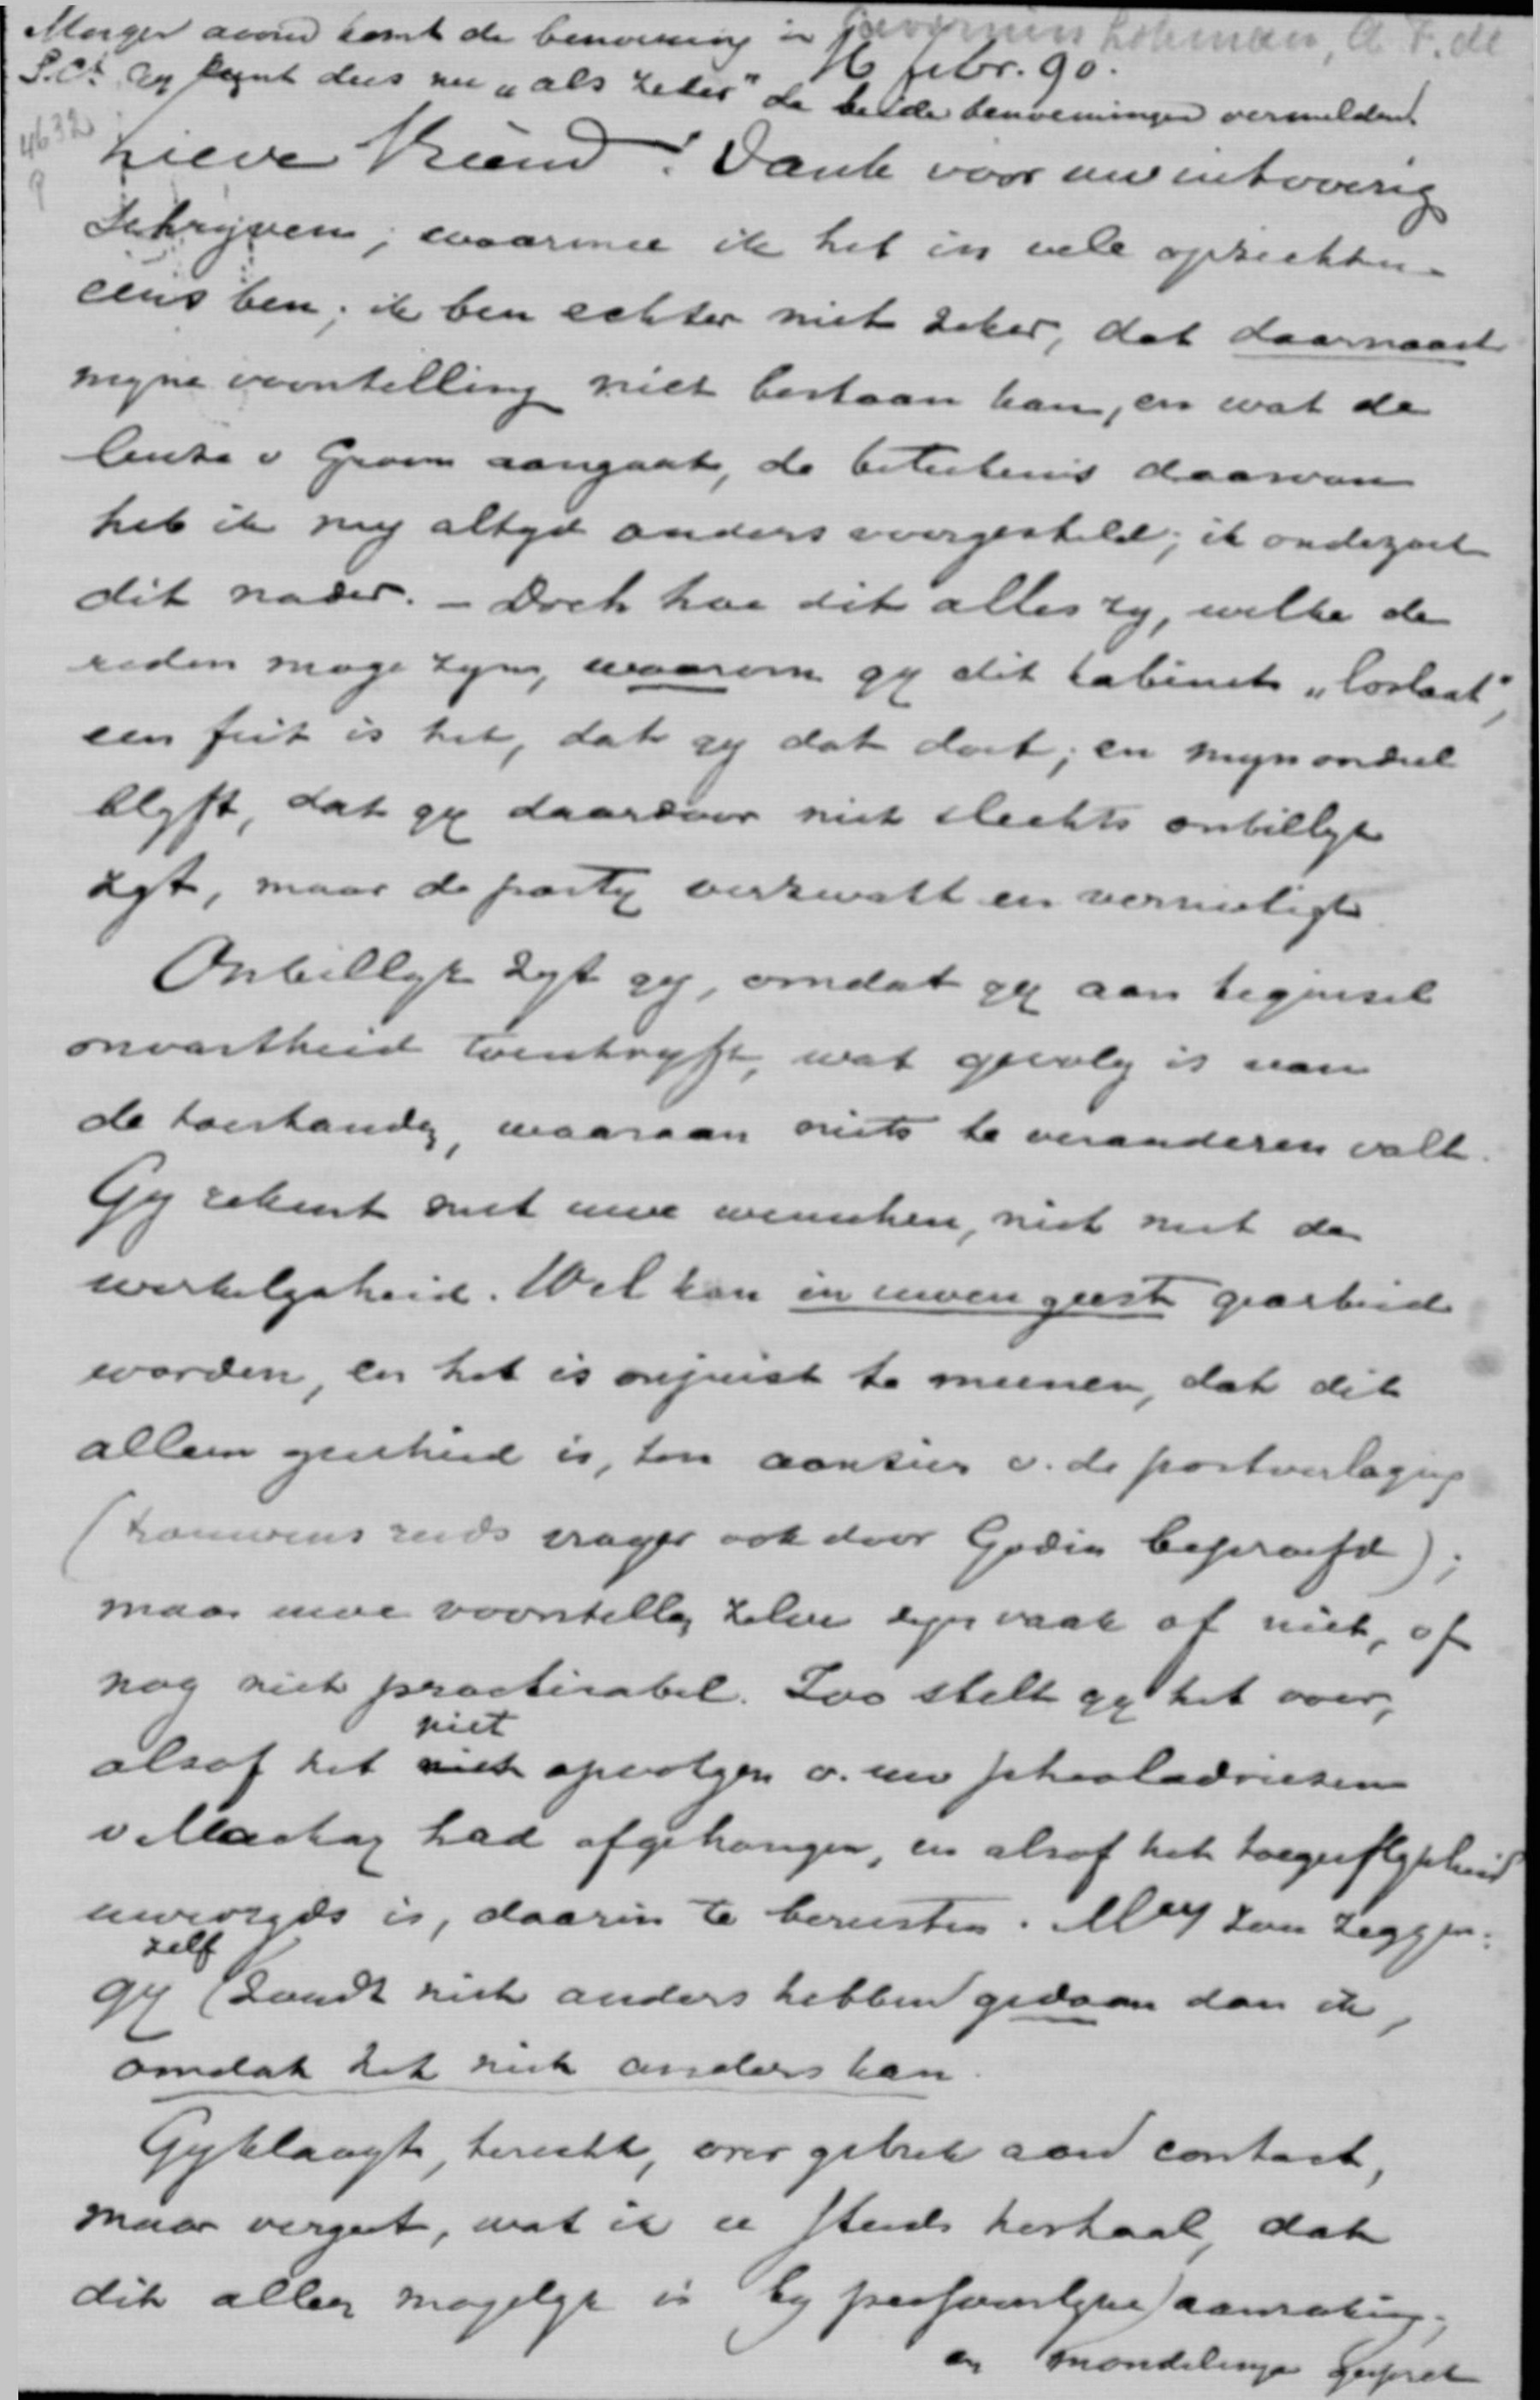 Morgen avond komt de benoeming in Savornin Lohman, A. F. de
S.Ct. Gy kunt dus nu "als zeker" de beide benoemingen vermelden!
16 febr. 90.
4632
9
Lieve Vriend! Dank voor uw uitvoerig
schryven, waarmee ik het in vele opzichten
eens ben; ik ben echter niet zeker, dat daarnaast
myne voorstelling niet bestaan kan, en wat de
leuze v Groen aangaat, de beteekenis daarvan
heb ik my altyd anders voorgesteld; ik onderzoek
dit nader. – Doch hoe dit alles zy, welke de
reden moge zyn, waarom gy dit kabinet "loslaat",
een feit is het, dat gy dat doet; en myn oordeel
blyft, dat gy daardoor niet slechts onbillyk
zyt, maar de party verzwakt en vernietigt
Onbillyk zyt gy, omdat gy aan beginsel
onvastheid toeschryft, wat gevolg is van
de toestanden, waaraan niets te veranderen valt.
Gy rekent met uwe wenschen, niet met de
werkelykheid. Wel kan in uwen geest gearbeid
worden, en het is onjuist te meenen, dat dit
alleen geschied is, ten aanzien v. de portverlaging
(trouwens reeds vroeger ook door Godin beproefd);
maar uwe voorstellen zelve zyn vaak of niet, of
nog niet practicabel. Zoo stelt gy het voor,
alsof het niet opvolgen v. uw schooladviezen
v Mackay had afgehangen, en alsof het toegeeflykheid
uwerzyds is, daarin te berusten. My zou zeggen:
gy zelf zoudt niet anders hebben gedaan dan ik,
omdat het niet anders kan.
Gy klaagt, terecht, over gebrek aan contact,
maar vergeet, wat ik u steeds herhaal, dat
dit alleen mogelyk is by persoonlyke aanraking,
en mondelinge gesprek